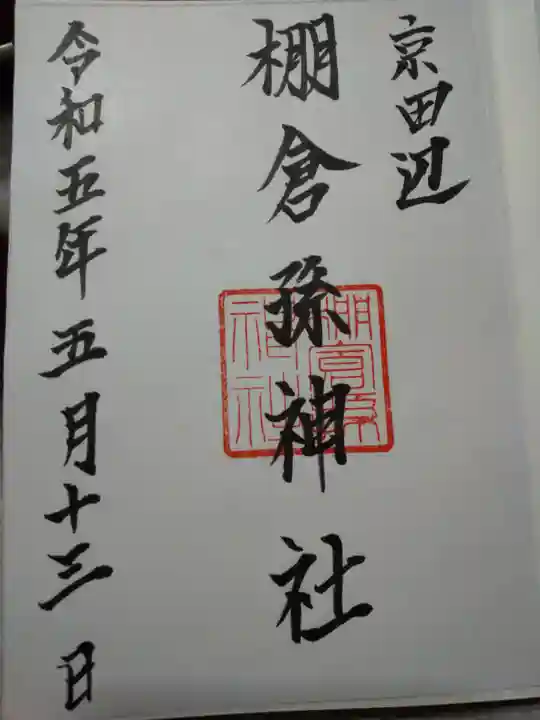 京田辺
棚倉孫神社
令和五年五月十三日